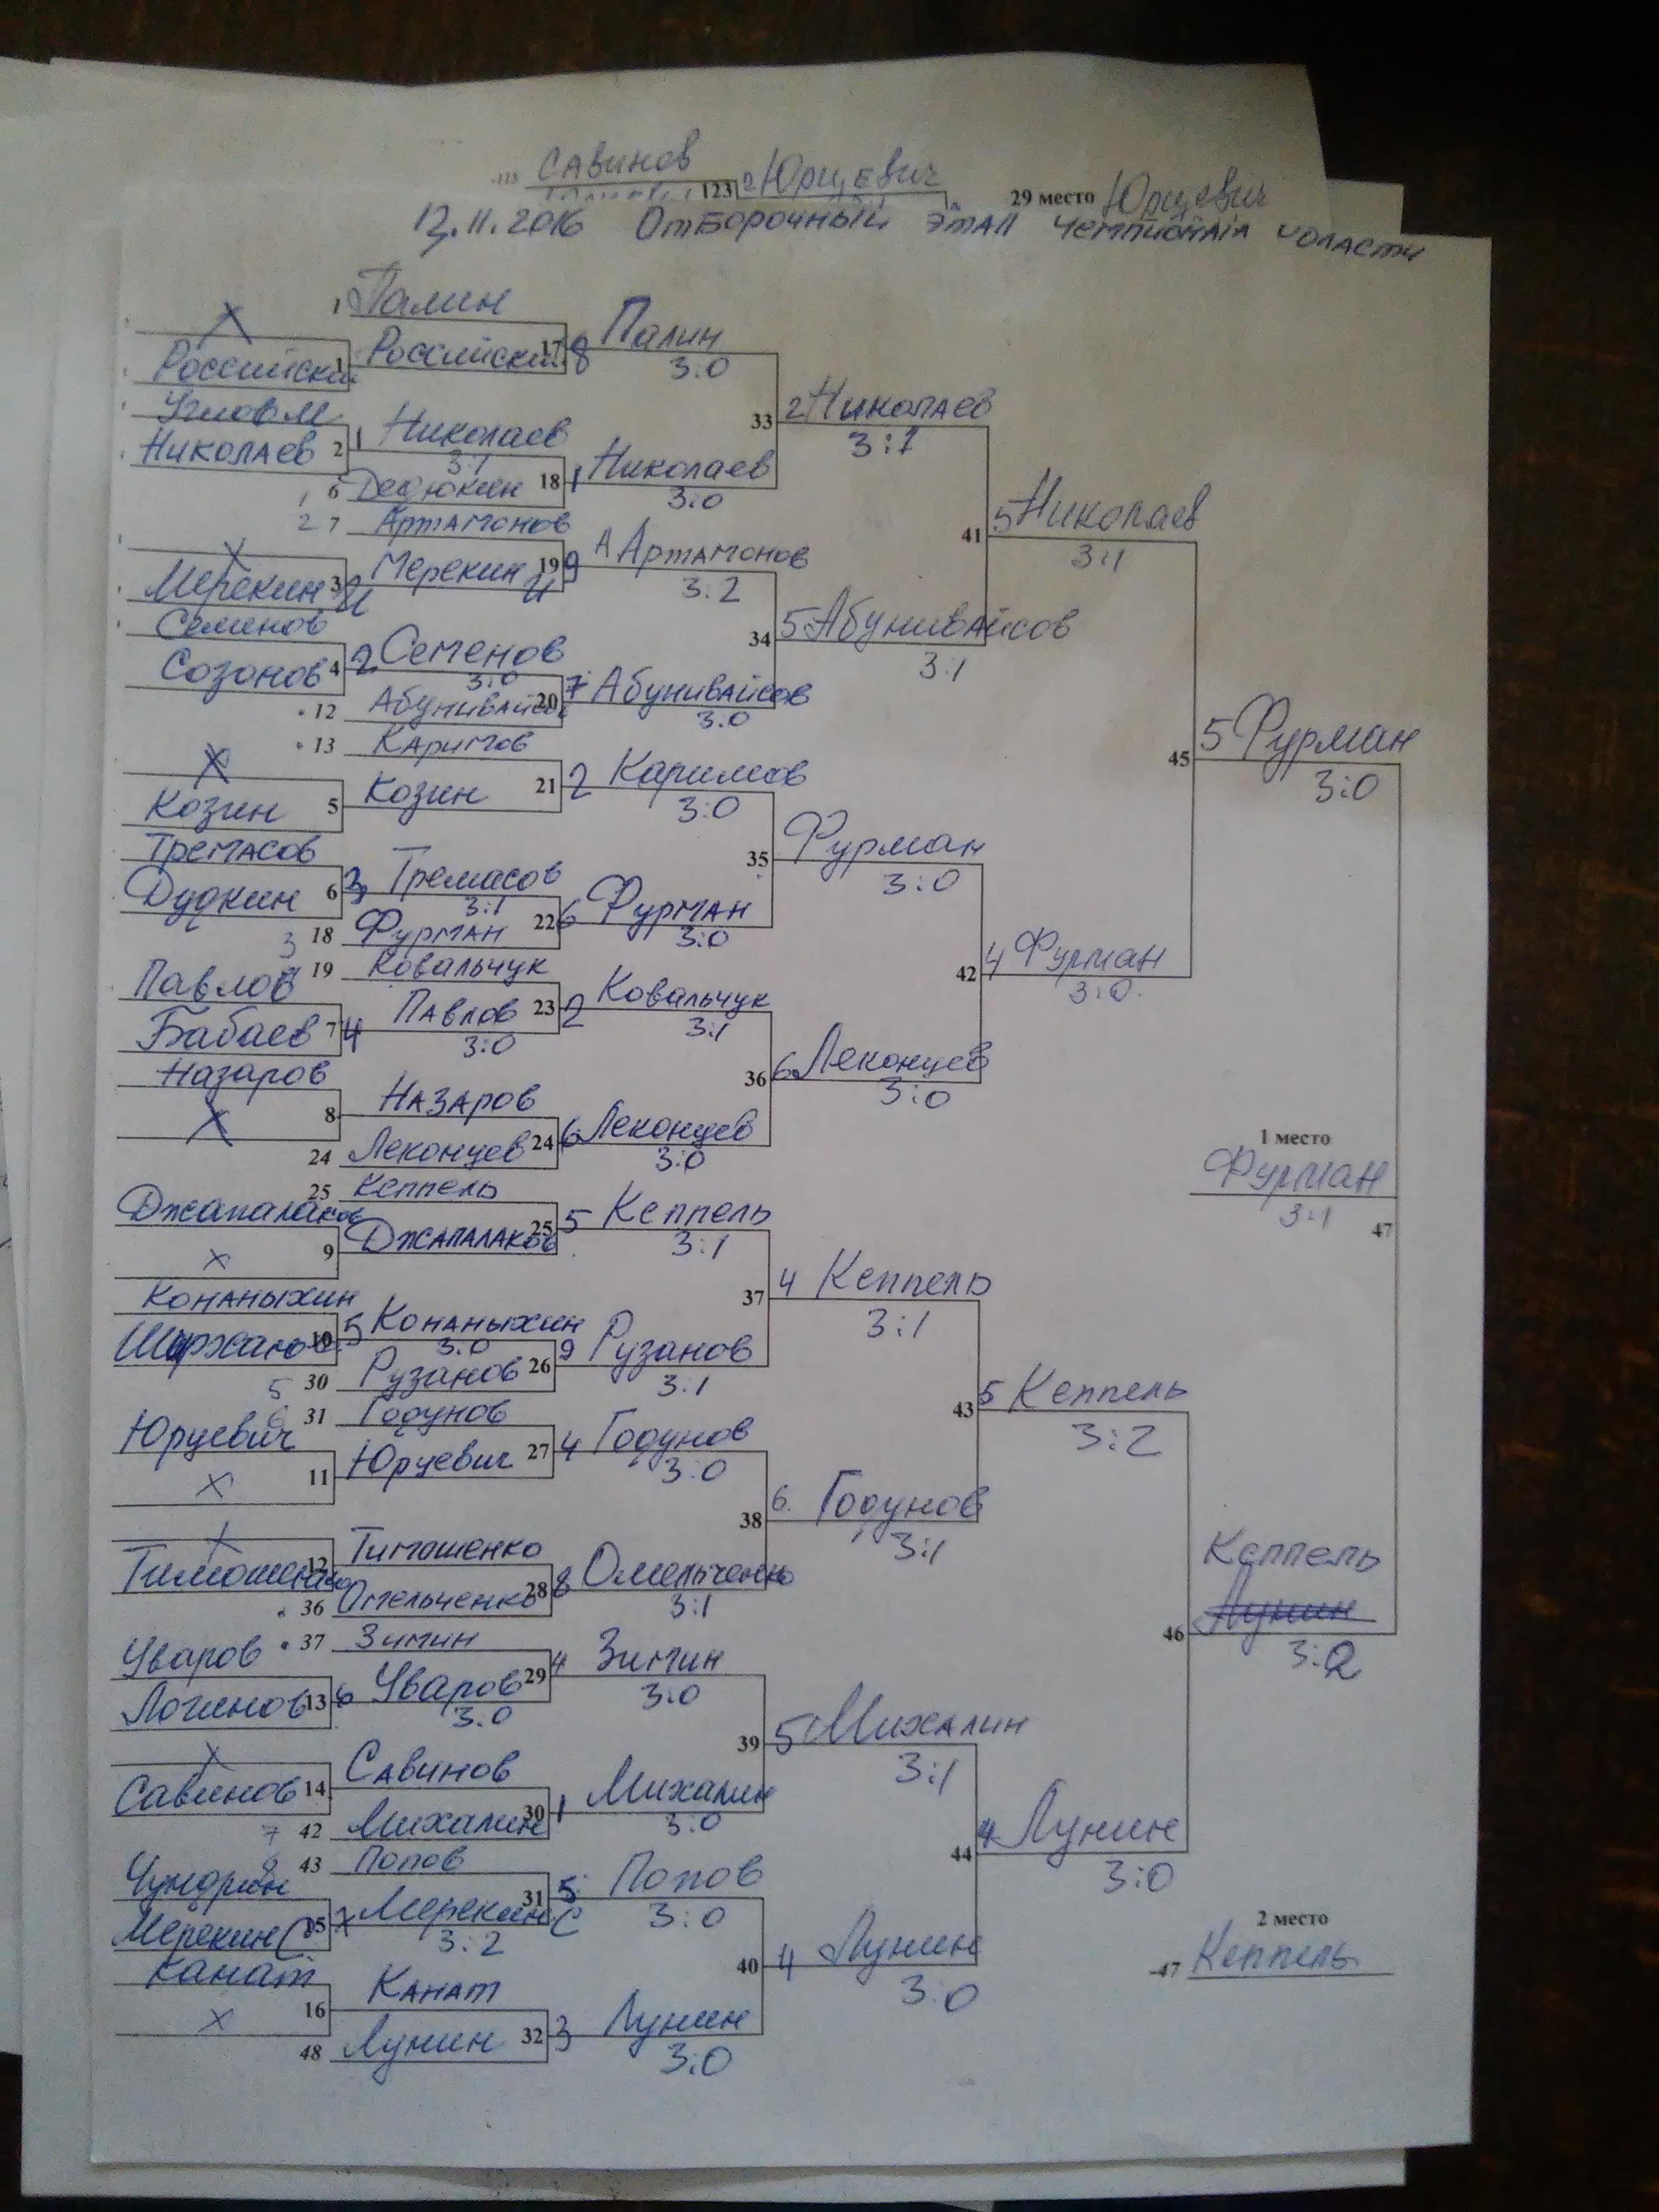 -115 Савинов
123 2 Юрцевич
29 место Юрцевич
13.11.2016 Отборочный этап чемпионата области
1 Палин
X
Российский 1 Российский 17 8 Палин
3:0
Углов М
Николаев 2 1 Николаев
3:1
6 Дедюкин 18 1 Николаев
3:0
33 2 Николаев
3:1
2 7 Артамонов
X
Мерекин И 3 Мерекин И 19 9 Артамонов
3:2
Семенов
Созонов 4 2 Семенов
3:0
12 Абунивайсов 20 7 Абунивайсов
3:0
34 5 Абунивайсов
3:1
41 5 Николаев
3:1
13 Каримов
X
Козин 5 Козин 21 2 Каримов
3:0
Тремасов
Дудкин 6 3 Тремасов
3:1
3 18 Фурман 22 6 Фурман
3:0
35 Фурман
3:0
4 19 Ковальчук
Павлов
Бабаев 7 4 Павлов 23 2 Ковальчук
3:0
3:1
Назаров
X
8 Назаров
24 Леконцев 24 6 Леконцев
3:0
36 6 Леконцев
3:0
42 4 Фурман
3:0
45 5 Фурман
3:0
25 Кеппель
Джапалаков
X
9 Джапалаков 25 5 Кеппель
3:1
Конаныхин
10 5 Конаныхин
3:0
5 30 Рузанов 26 9 Рузанов
3:1
37 4 Кеппель
3:1
6 31 Годунов
Юрцевич
X
11 Юрцевич 27 4 Годунов
3:0
X
Тимошенко 12 Тимошенко
36 Омельченко 28 8 Омельченко
3:1
38 6 Годунов
3:1
43 5 Кеппель
3:2
37 Зимин
Уваров
Логинов 13 6 Уваров 29 4 Зимин
3:0
3:0
X
Савинов 14 Савинов
7 42 Михалин 30 1 Михалин
3:0
39 5 Михалин
3:1
8 43 Попов
Чундрин
Мерекин С 15 7 Мерекин С 31 5 Попов
3:2
3:0
Канат
X
16 Канат
48 Лунин 32 3 Лунин
3:0
40 4 Лунин
3:0
44 4 Лунин
3:0
46 Кеппель
Лунин
3:2
1 место
Фурман
3:1
47
2 место
-47 Кеппель